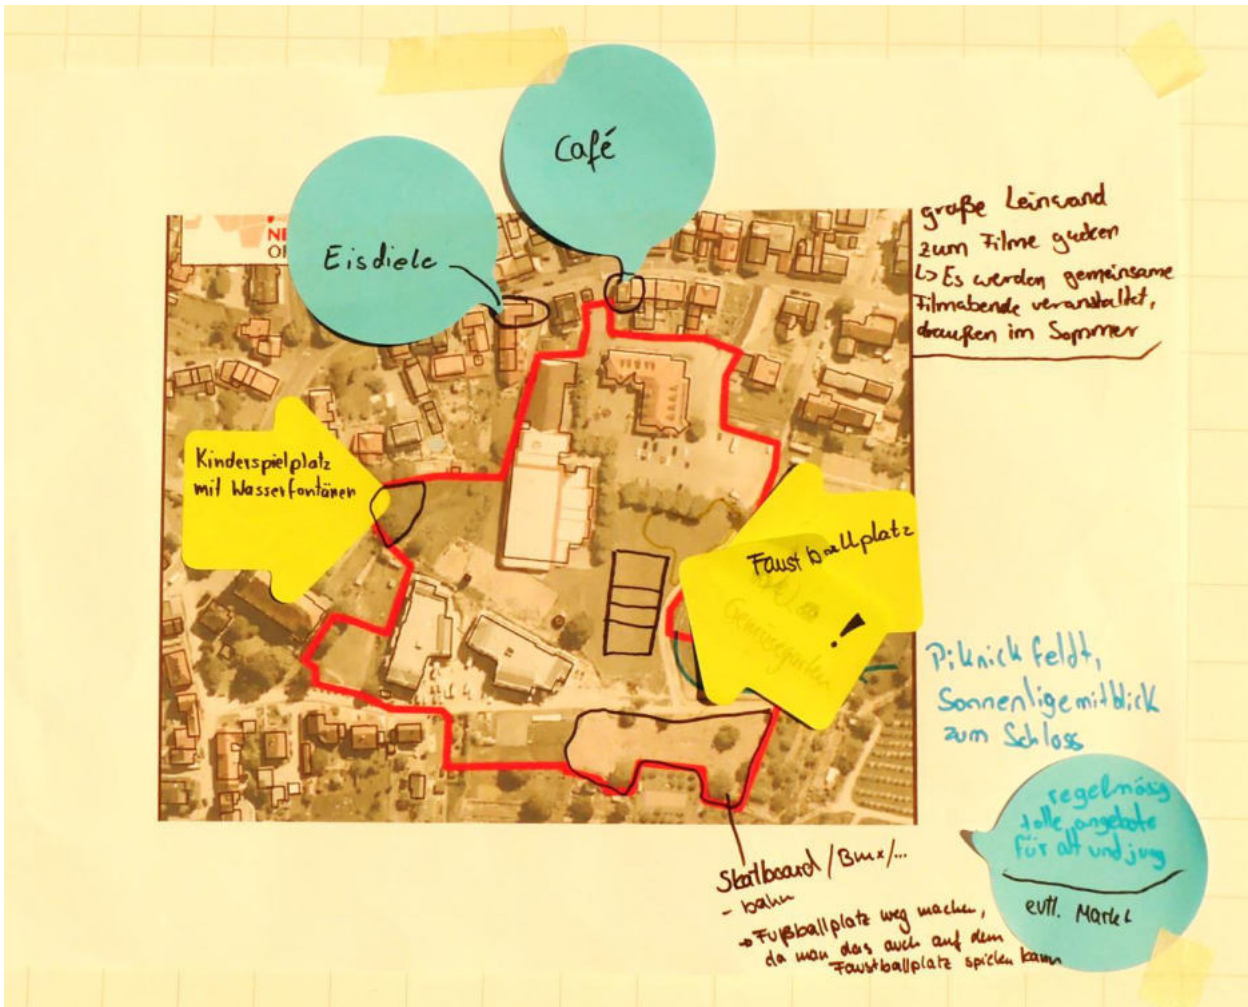 Café
Eisdiele
große Leinwand
zum Filme gucken
↳ Es werden gemeinsame
Filmabende veranstaltet,
draußen im Sommer
Kinderspielplatz
mit Wasserfontänen
Faustballplatz
!
Gemüsegarten
Piknick feldt,
Sonnenligemitblick
zum Schloss
regelmäsig
tolle angebote
für alt und jung
evtl. Markt
Skatboard/Bmx/...
- bahn
→ Fußballplatz weg machen,
da man das auch auf dem
Faustballplatz spielen kann